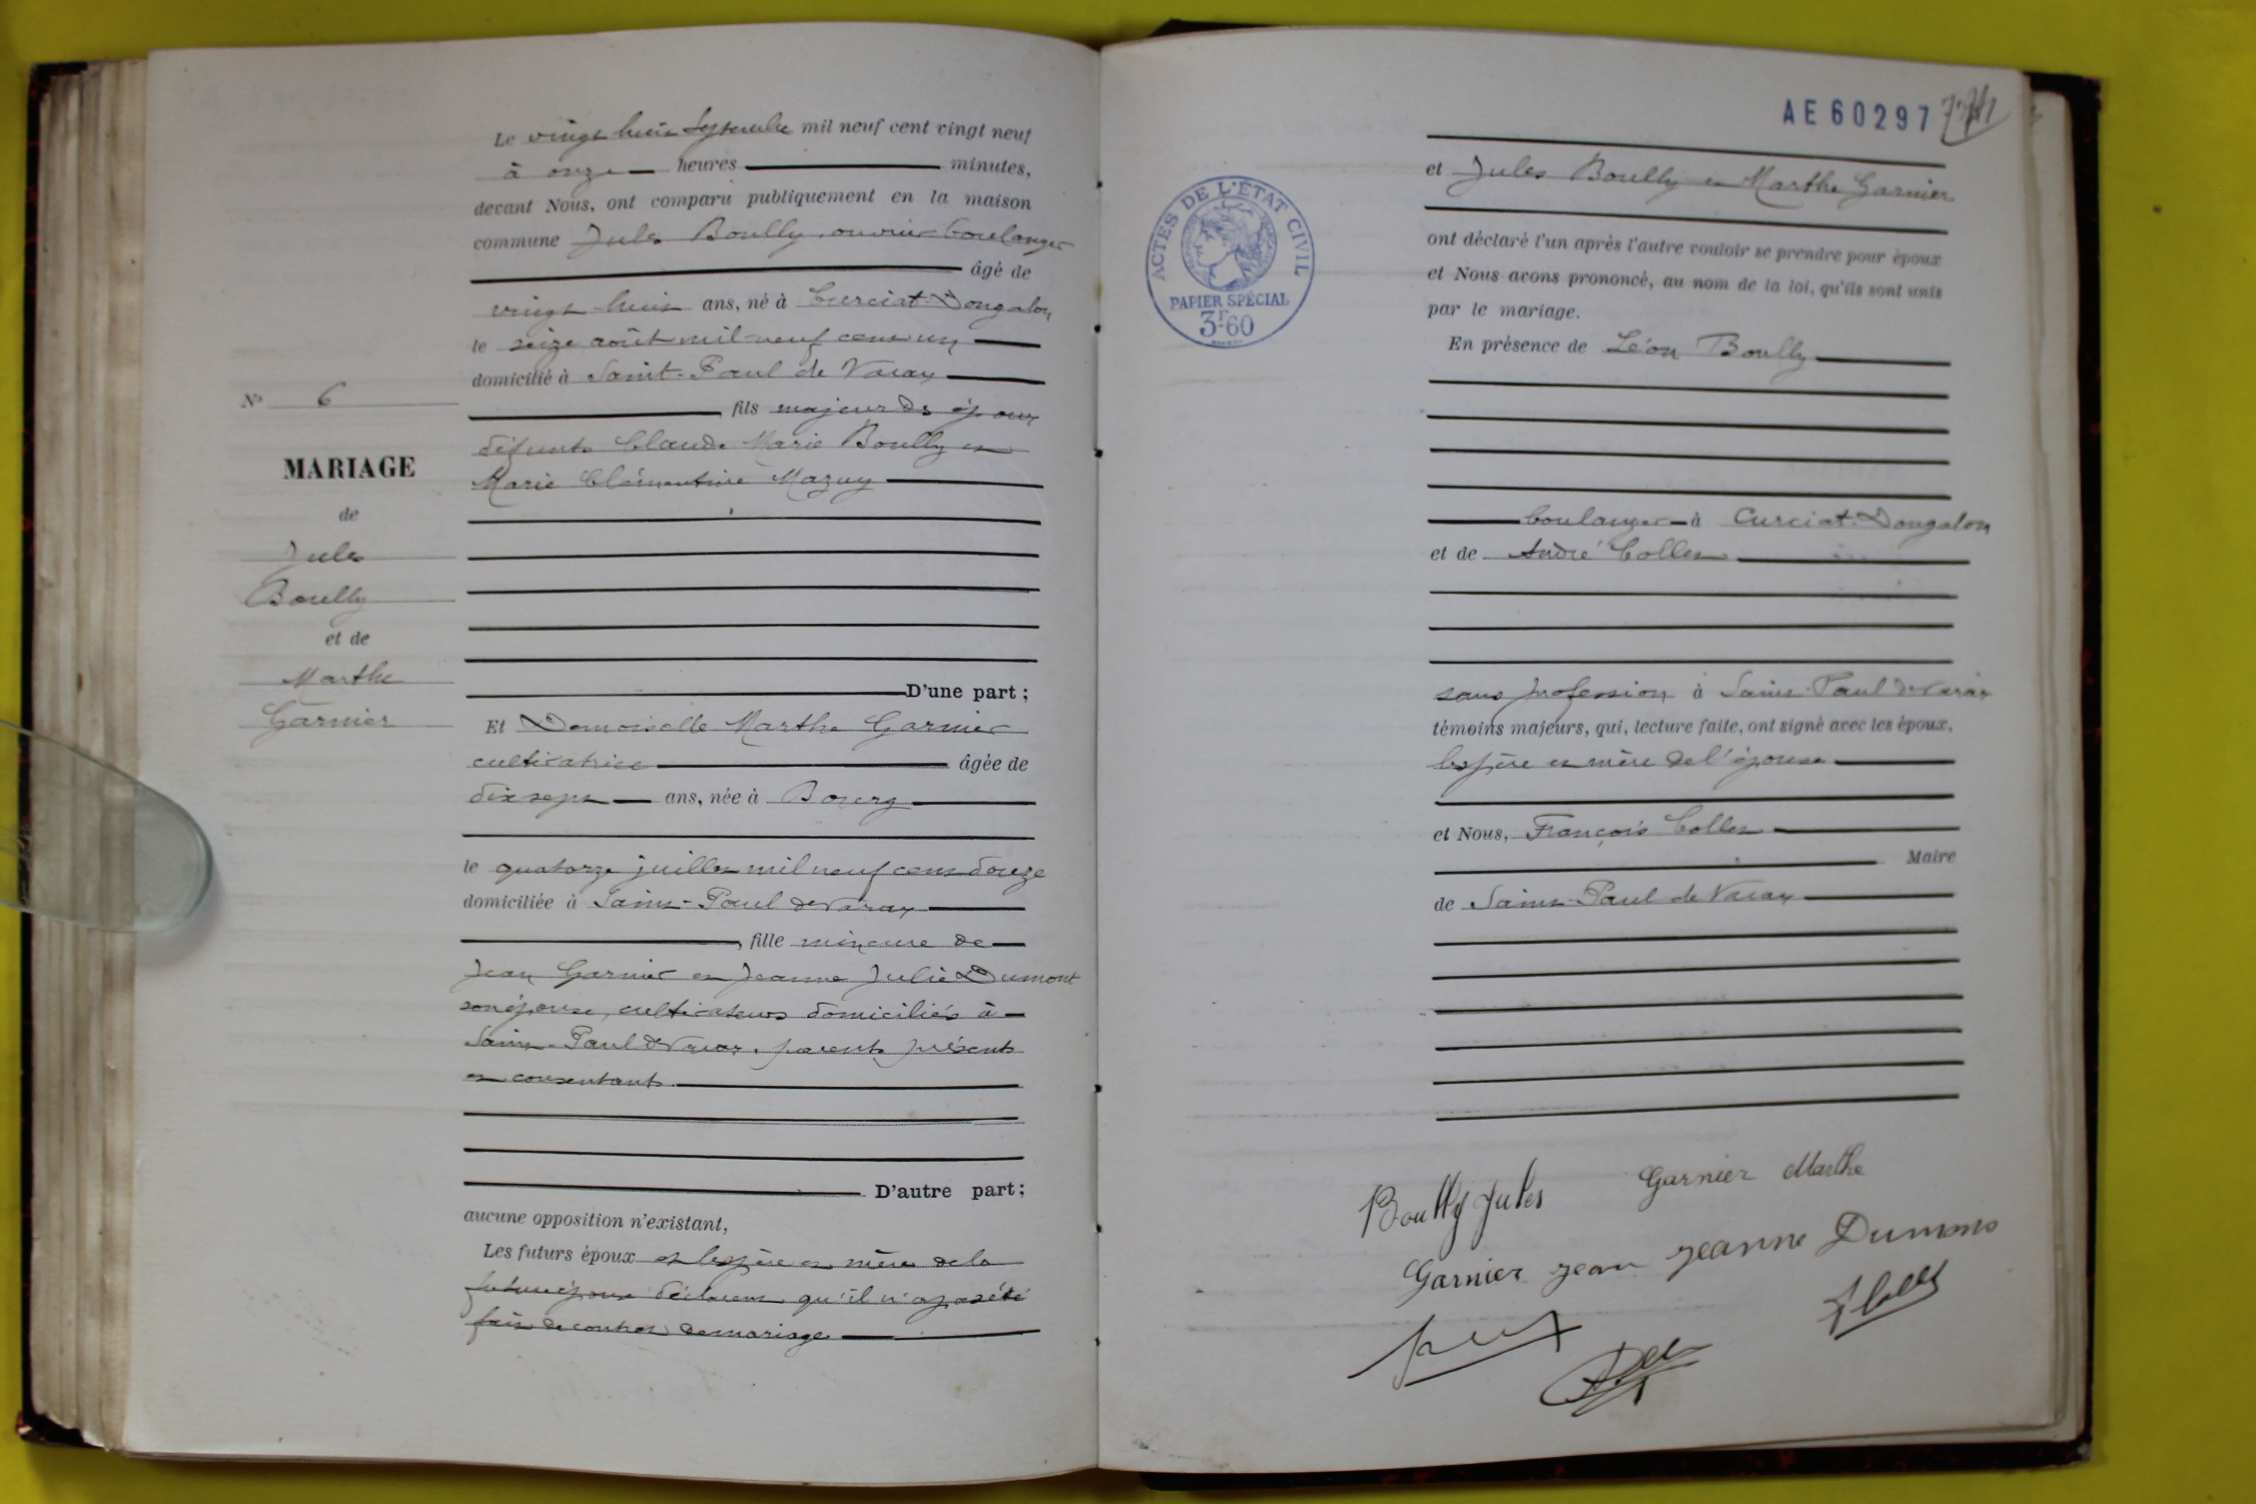 Le vingt huit Septembre mil neuf cent vingt neuf
à onze heures minutes,
devant Nous, ont comparu publiquement en la maison
commune Jules Boully, ouvrier boulanger
âgé de
vingt-huit ans, né à Curciat-Dongalon
le seize août mil neuf cent un
domicilié à Saint-Paul de Varax
fils majeur des époux
défunts Claude Marie Boully et
Marie Clémentine Mazuy
D'une part ;
Et Demoiselle Marthe Garnier
cultivatrice âgée de
dix sept ans, née à Bourg
le quatorze juillet mil neuf cent douze
domiciliée à Saint-Paul de Varax
, fille mineure de
Jean Garnier et Jeanne Julie Dumont
son épouse, cultivateurs domiciliés à
Saint-Paul de Varax, parents présents
et consentants
D'autre part ;
aucune opposition n'existant,
Les futurs époux et les père et mère de la
future épouse déclarent qu'il n'a pas été
fait de contrat de mariage
No 6
MARIAGE
de
Jules
Boully
et de
Marthe
Garnier
AE 60297
ACTES DE L'ÉTAT CIVIL
PAPIER SPÉCIAL
3f.60
et Jules Boully et Marthe Garnier
ont déclaré l'un après l'autre vouloir se prendre pour époux
et Nous avons prononcé, au nom de la loi, qu'ils sont unis
par le mariage.
En présence de Léon Boully
boulanger à Curciat-Dongalon
et de André Collet
sans profession à Saint-Paul de Varax
témoins majeurs, qui, lecture faite, ont signé avec les époux,
les père et mère de l'épouse
et Nous, François Collet
Maire
de Saint-Paul de Varax
Boully Jules Garnier Marthe
Garnier Jean Jeanne Dumont